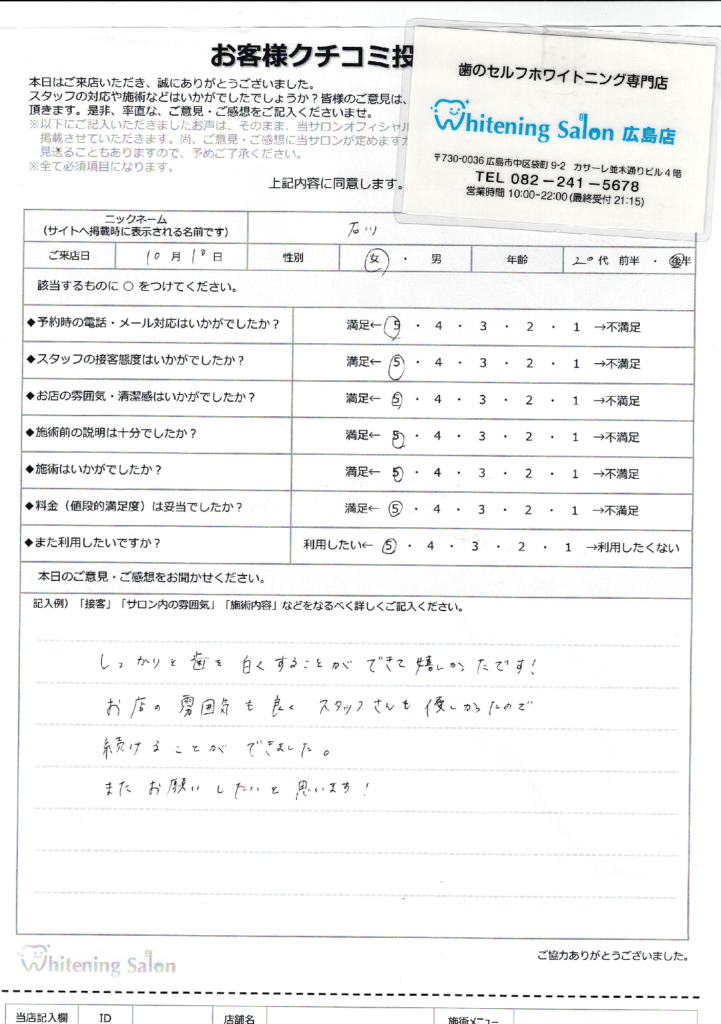 お客様クチコミ投
本日はご来店いただき、誠にありがとうございました。
スタッフの対応や施術などはいかがでしたでしょうか？皆様のご意見は、
頂きます。是非、率直な、ご意見・ご感想をご記入くださいませ。
※以下にご記入いただきましたお声は、そのまま、当サロンオフィシャル
掲載させていただきます。尚、ご意見・ご感想に当サロンが定めますガ
見送ることもありますので、予めご了承ください。
※全て必須項目になります。
上記内容に同意します。
歯のセルフホワイトニング専門店
Whitening Salon 広島店
〒730-0036 広島市中区袋町 9-2 カサーレ並木通りビル 4 階
TEL 082－241－5678
営業時間 10:00~22:00 (最終受付 21:15)
ニックネーム
(サイトへ掲載時に表示される名前です) 石川
ご来店日 10 月 18 日 性別 女 ・ 男 年齢 20 代 前半 ・ 後半
該当するものに ○ をつけてください。
◆予約時の電話・メール対応はいかがでしたか？ 満足← 5 ・ 4 ・ 3 ・ 2 ・ 1 →不満足
◆スタッフの接客態度はいかがでしたか？ 満足← 5 ・ 4 ・ 3 ・ 2 ・ 1 →不満足
◆お店の雰囲気・清潔感はいかがでしたか？ 満足← 5 ・ 4 ・ 3 ・ 2 ・ 1 →不満足
◆施術前の説明は十分でしたか？ 満足← 5 ・ 4 ・ 3 ・ 2 ・ 1 →不満足
◆施術はいかがでしたか？ 満足← 5 ・ 4 ・ 3 ・ 2 ・ 1 →不満足
◆料金（値段的満足度）は妥当でしたか？ 満足← 5 ・ 4 ・ 3 ・ 2 ・ 1 →不満足
◆また利用したいですか？ 利用したい← 5 ・ 4 ・ 3 ・ 2 ・ 1 →利用したくない
本日のご意見・ご感想をお聞かせください。
記入例）「接客」「サロン内の雰囲気」「施術内容」などをなるべく詳しくご記入ください。
しっかりと歯を白くすることができて嬉しかったです！
お店の雰囲気も良く スタッフさんも優しかったので
続けることができました。
またお願いしたいと思います！
Whitening Salon
ご協力ありがとうございました。
当店記入欄 ID 店舗名 施術メニュー